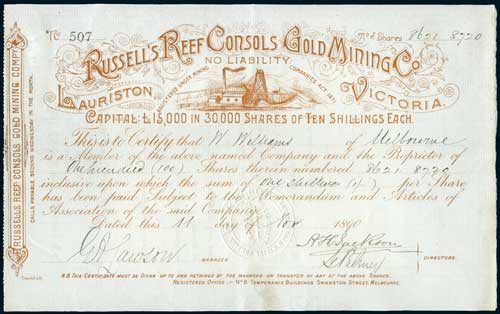 No 507
No of Shares 8621 8720
RUSSELL'S REEF CONSOLS GOLD MINING Co
NO LIABILITY
REGISTERED UNDER MINING COMPANIES ACT 1871
LAURISTON VICTORIA.
CAPITAL: £15,000 IN 30,000 SHARES OF TEN SHILLINGS EACH.
This is to Certify that W Williams of Melbourne
is a Member of the above named Company and the Proprietor of
One hundred (100) Shares therein numbered 8621 8720
inclusive upon which the sum of One shilling (1/-) per Share
has been paid Subject to the Memorandum and Articles of
Association of the said Company.
Dated this 11 day of Nov 1890
MANAGER
DIRECTORS.
N.B. THIS CERTIFICATE MUST BE GIVEN UP TO AND RETAINED BY THE MANAGER ON TRANSFER OF ANY OF THE ABOVE SHARES.
REGISTERED OFFICE:— No 8 TEMPERANCE BUILDINGS SWANSTON STREET, MELBOURNE.
RUSSELL'S REEF CONSOLS GOLD MINING COMPY
CALLS PAYABLE SECOND WEDNESDAY IN THE MONTH.